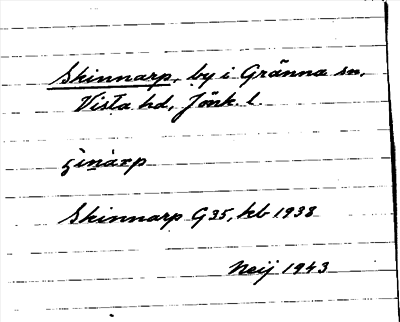 Skinnarp, by i Gränna sn,
Vista hd, Jönk. l.
Skinnarp G35, kb 1938
Neij 1943